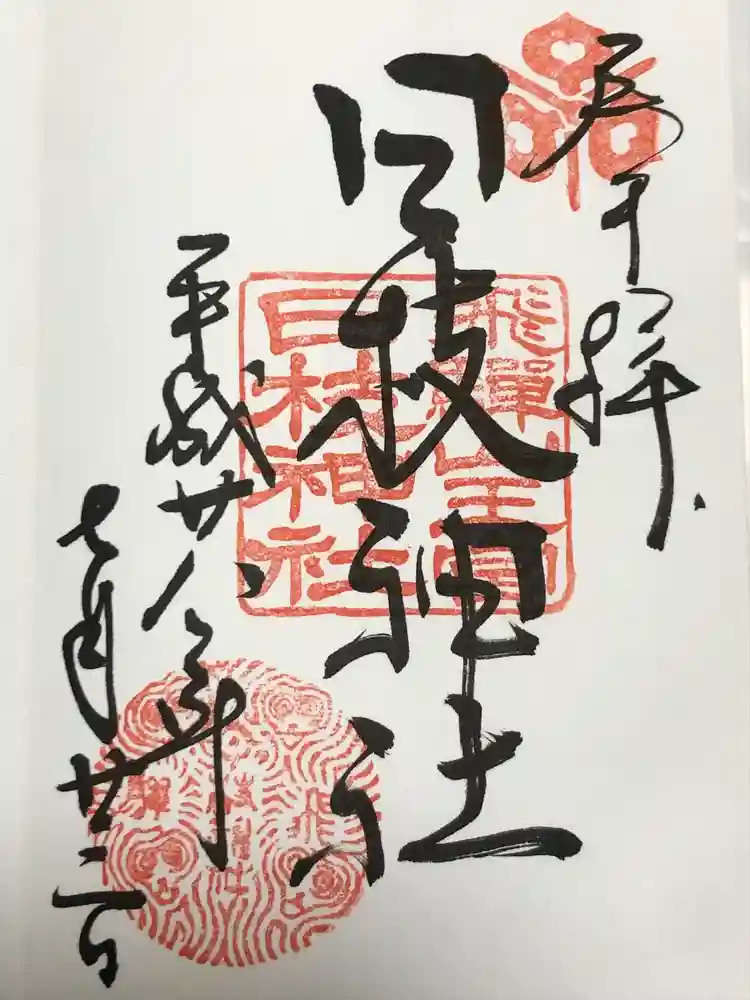 拝
日枝神社
飛驒山王宮
日枝神社
平成廿八年
七月廿二日